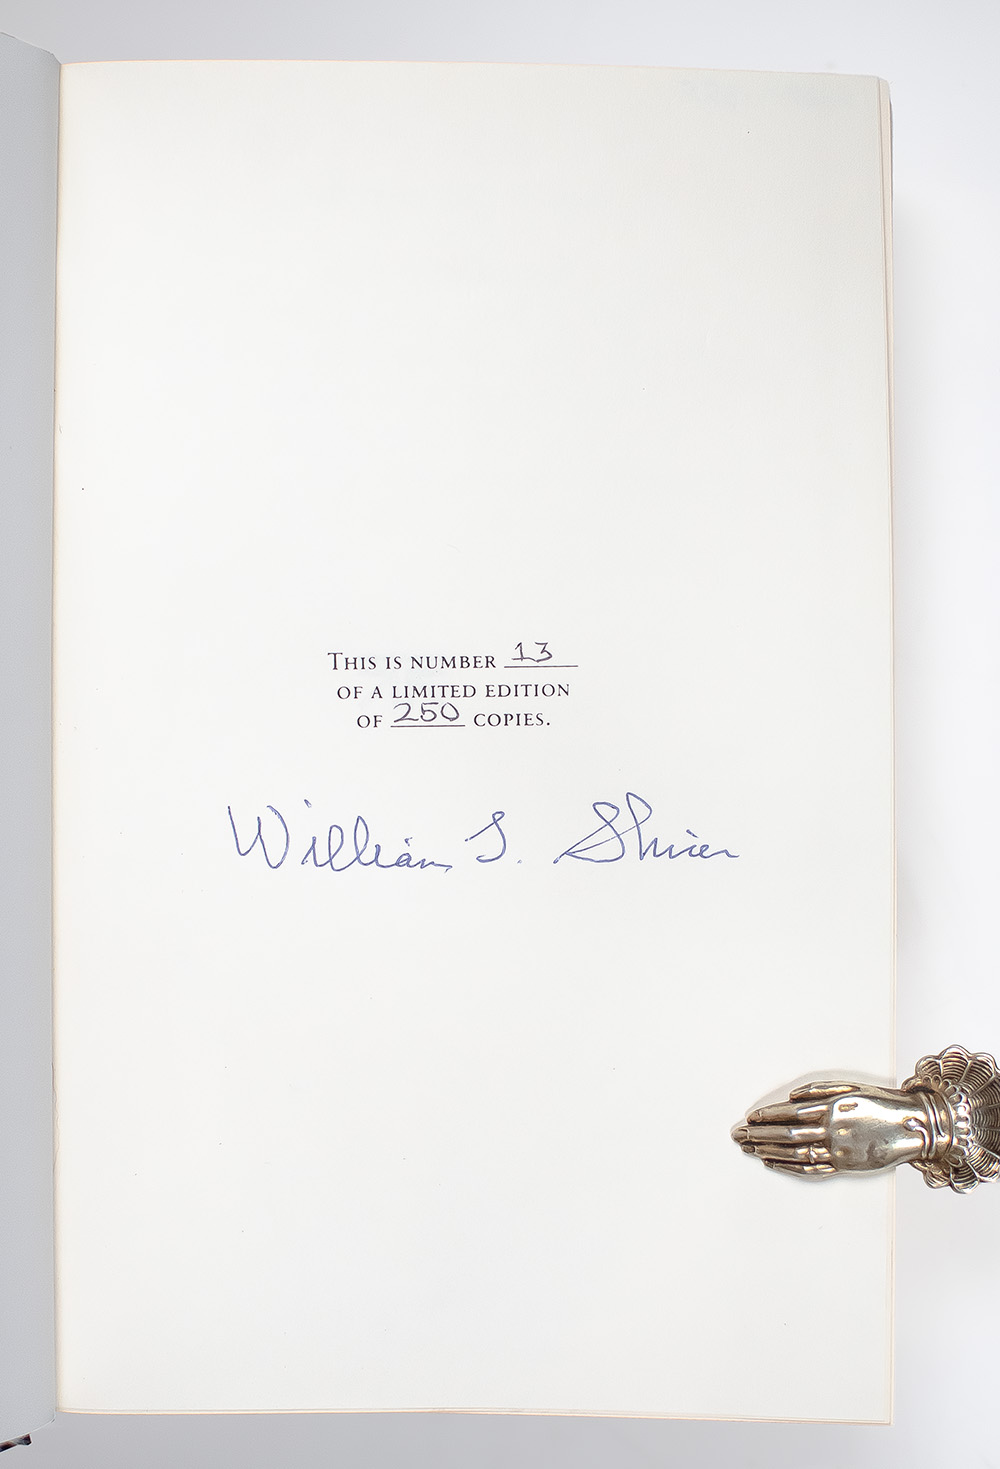 THIS IS NUMBER 13
OF A LIMITED EDITION
OF 250 COPIES.
William L. Shirer